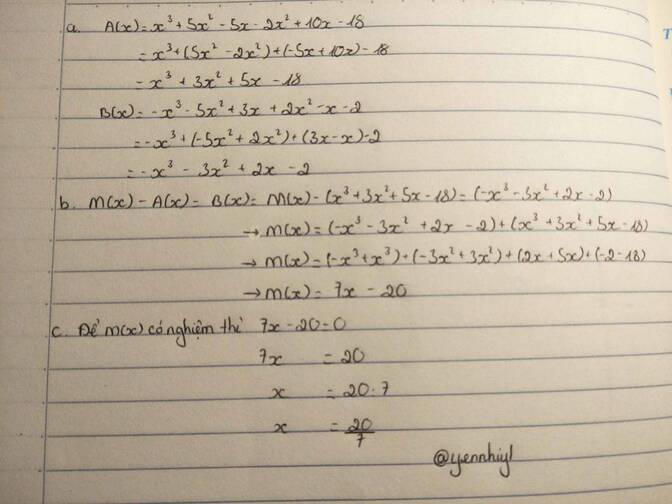 a. A(x) = x³ + 5x² - 5x - 2x² + 10x - 18
= x³ + (5x² - 2x²) + (-5x + 10x) - 18
= x³ + 3x² + 5x - 18
B(x) = -x³ - 5x² + 3x + 2x² - x - 2
= -x³ + (-5x² + 2x²) + (3x - x) - 2
= -x³ - 3x² + 2x - 2
b. M(x) - A(x) = B(x) = M(x) - (x³ + 3x² + 5x - 18) = (-x³ - 3x² + 2x - 2)
→ M(x) = (-x³ - 3x² + 2x - 2) + (x³ + 3x² + 5x - 18)
→ M(x) = (-x³ + x³) + (-3x² + 3x²) + (2x + 5x) + (-2 - 18)
→ M(x) = 7x - 20
c. Để M(x) có nghiệm thì 7x - 20 = 0
7x = 20
x = 20 : 7
x = 20/7
@yennhiy1